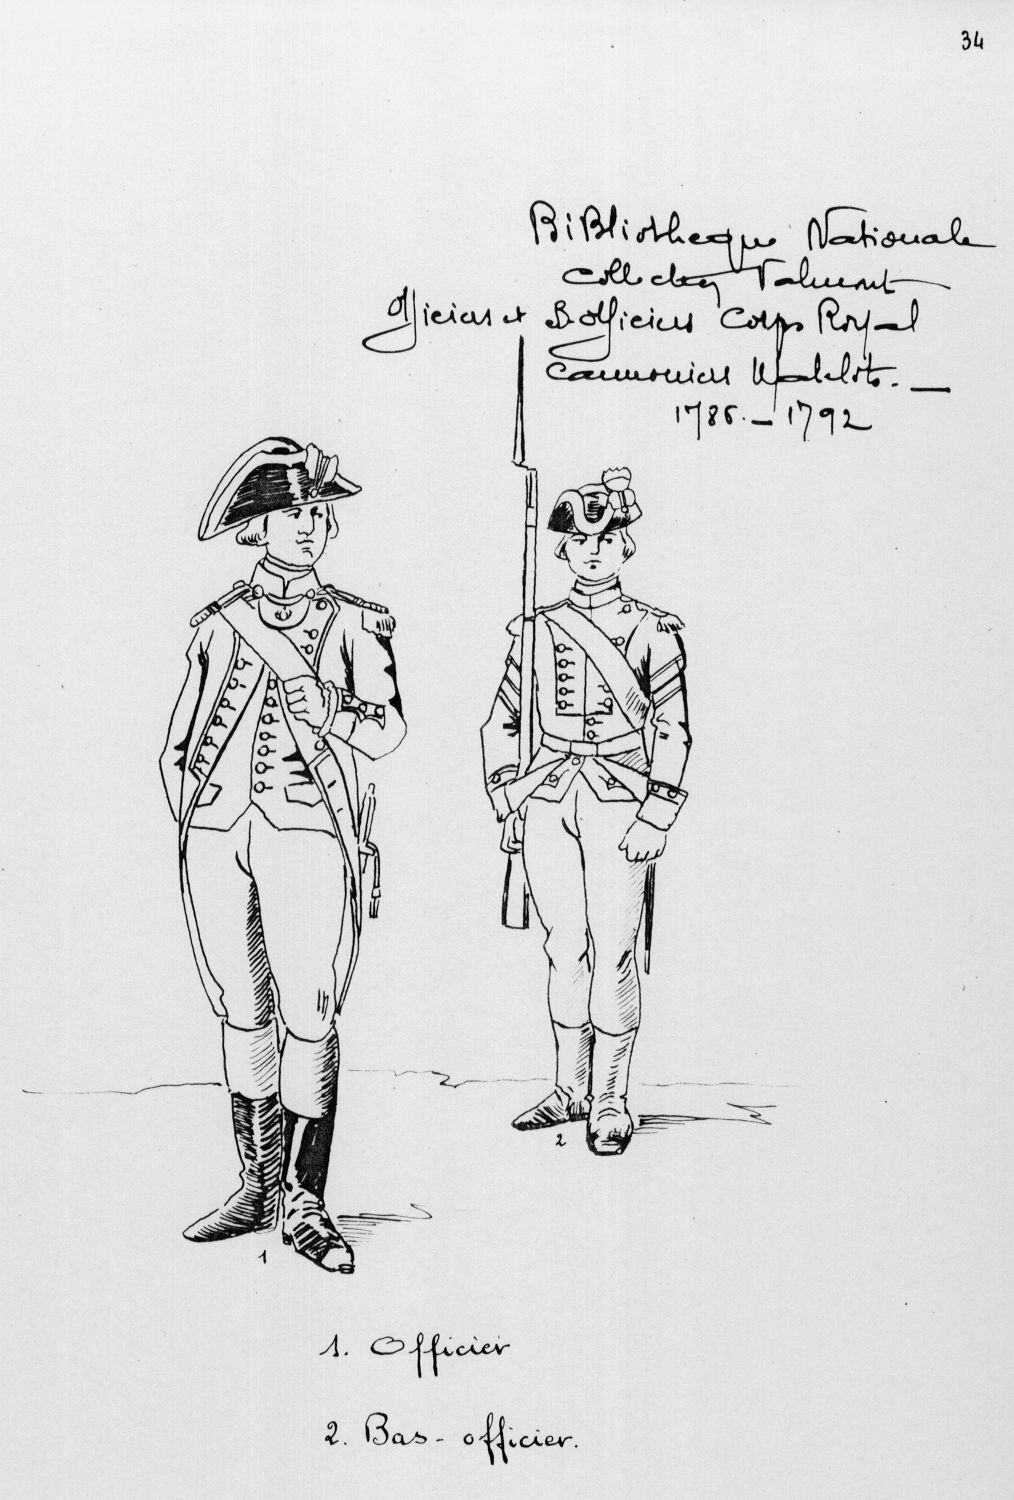 34
BiBliotheque Nationale
Collection Valmont
Officiers et B. Officiers Corps Royal
Cannoniers Matelots. —
1786. — 1792
2
1
1. Officier
2. Bas-officier.